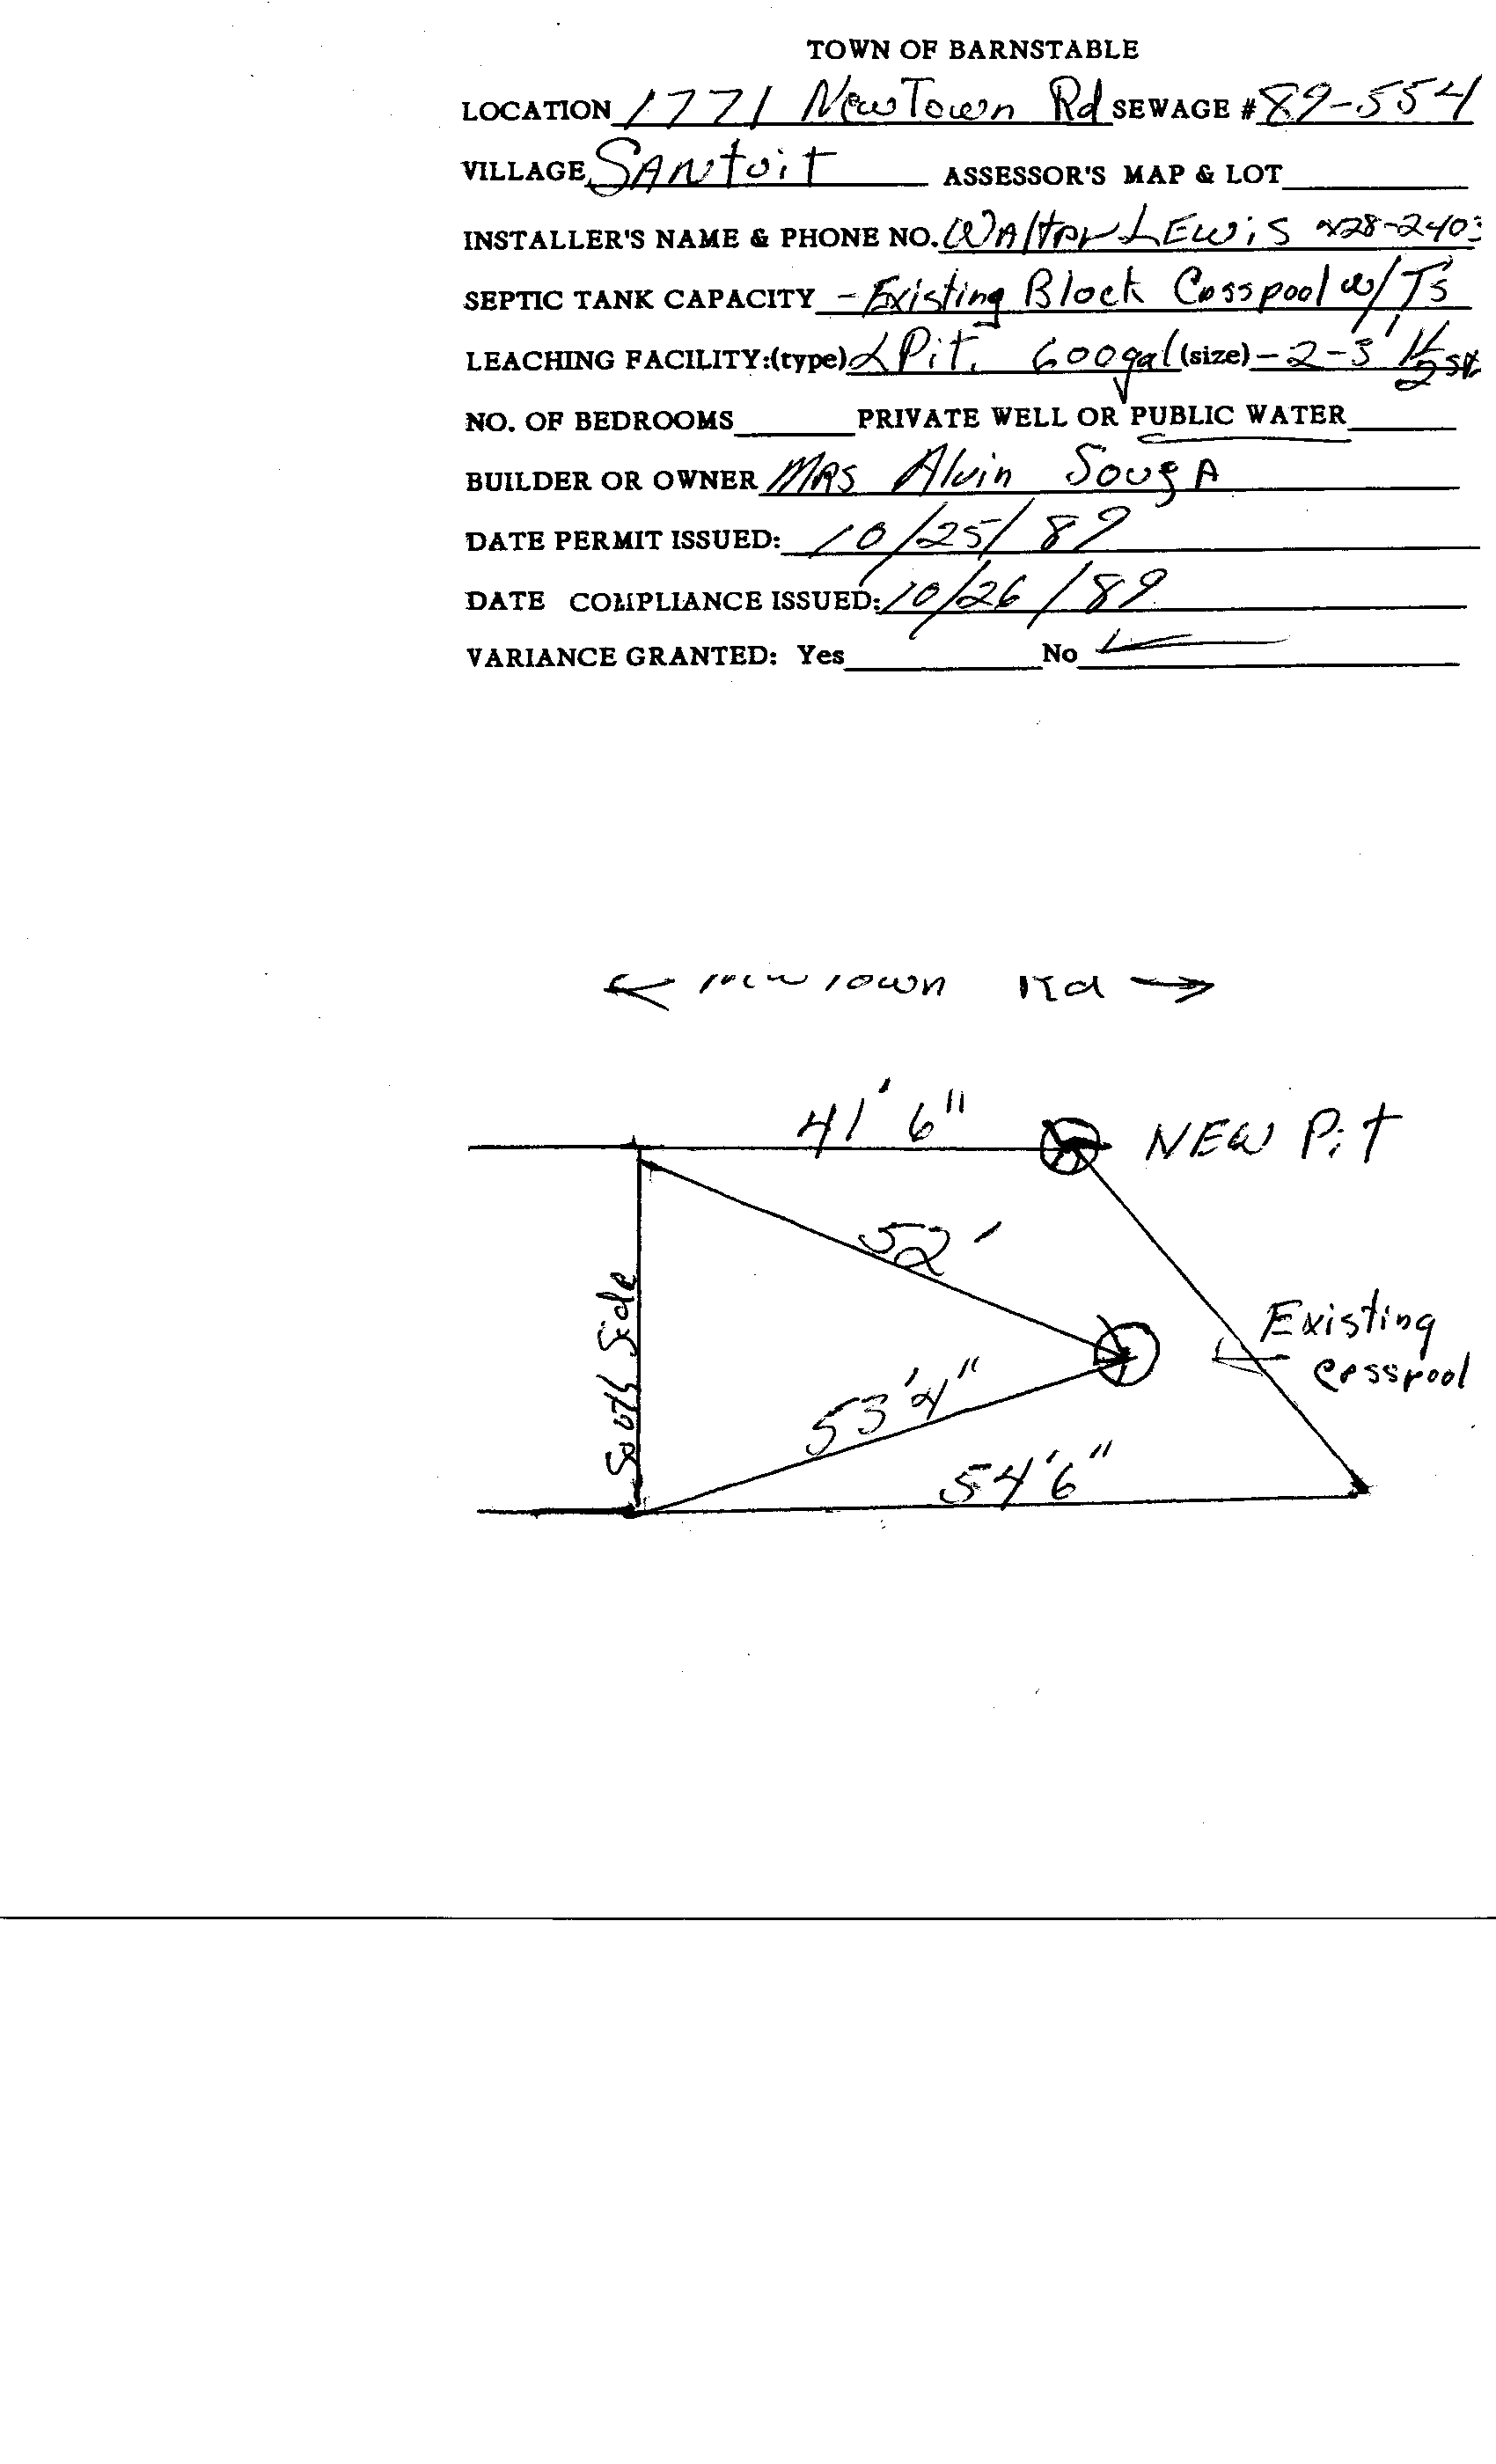 TOWN OF BARNSTABLE
LOCATION 1771 NewTown Rd SEWAGE # 89-554
VILLAGE SANtuit ASSESSOR'S MAP & LOT
INSTALLER'S NAME & PHONE NO. WAlter LEwiS 428-2403
SEPTIC TANK CAPACITY - Existing Block Cesspool w/Ts
LEACHING FACILITY:(type) LPit. 600gal (size) - 2-3' 1 1/2 st
NO. OF BEDROOMS PRIVATE WELL OR PUBLIC WATER
BUILDER OR OWNER MRS Alvin SouzA
DATE PERMIT ISSUED: 10/25/89
DATE COMPLIANCE ISSUED: 10/26/89
VARIANCE GRANTED: Yes No
NewTown Rd
41' 6"
NEW Pit
52'
South Side
Existing
cesspool
53'4"
54'6"